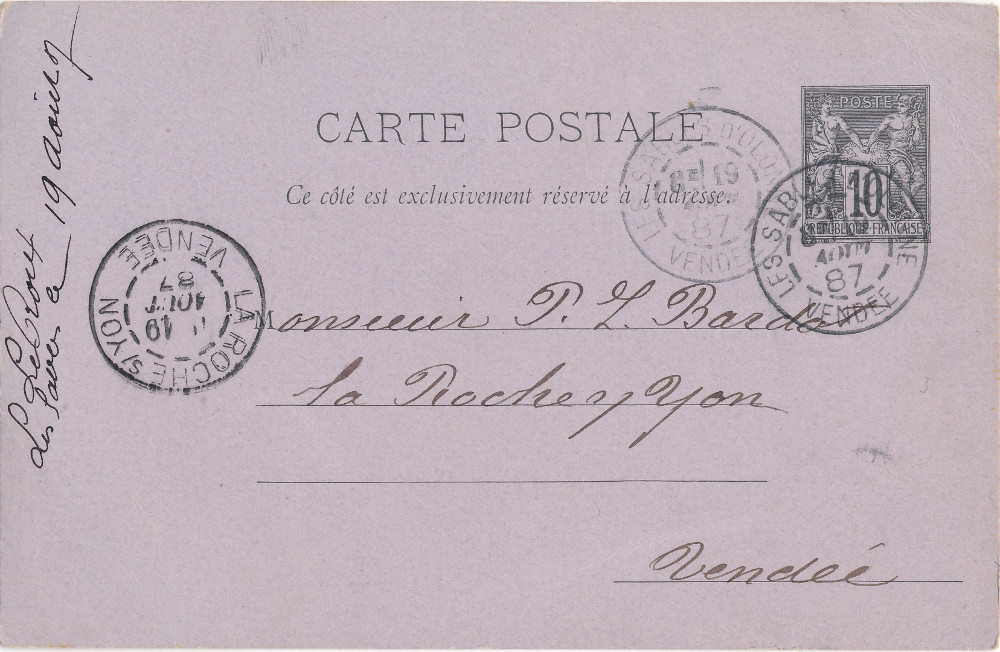 CARTE POSTALE
Ce côté est exclusivement réservé à l'adresse.
POSTE
10
REPUBLIQUE FRANÇAISE
LES SABLES D'OLONNE
19
87
VENDÉE
LES SABLES D'OLONNE
AOUT
87
VENDÉE
LA ROCHE S/YON
19
AOUT
87
VENDÉE
Monsieur P. L. Bardo
la Roche s/ Yon
Vendée
19